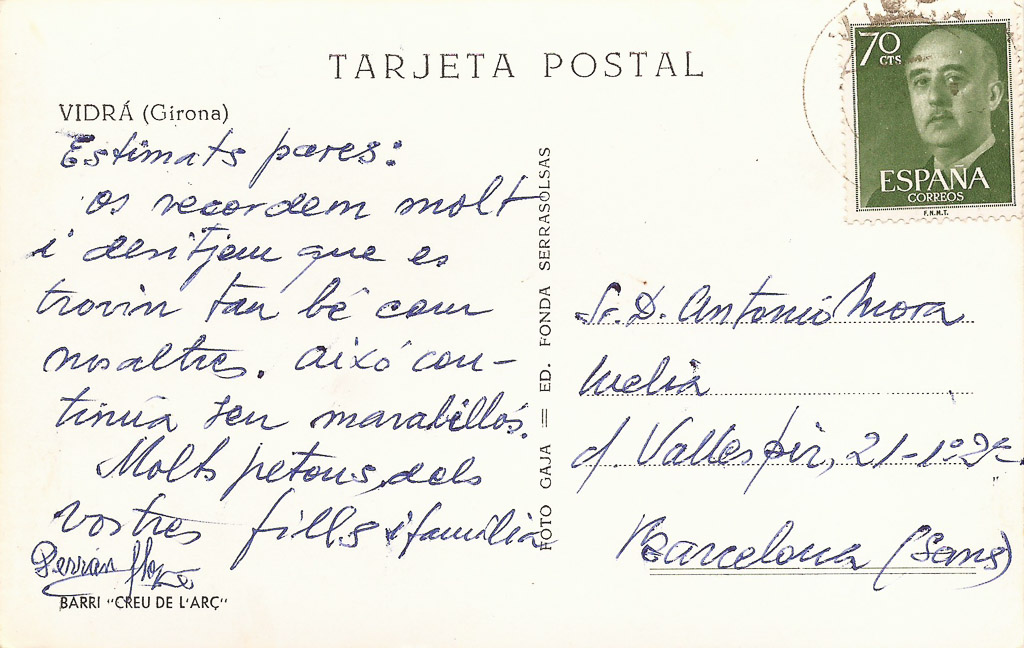 TARJETA POSTAL
VIDRÁ (Girona)
Estimats pares:
os recordem molt
i desitjem que es
trovin tan bé com
nosaltres. Aixó con-
tinúa sen marabillós.
Molts petons dels
vostres fills i família
BARRI "CREU DE L'ARÇ"
FOTO GAJA = ED. FONDA SERRASOLSAS
70
CTS
ESPAÑA
CORREOS
F.N.M.T.
Sr. D. Antonio Mora
Melia
c/. Vallespir, 21-1º 3ª
Barcelona (Sans)